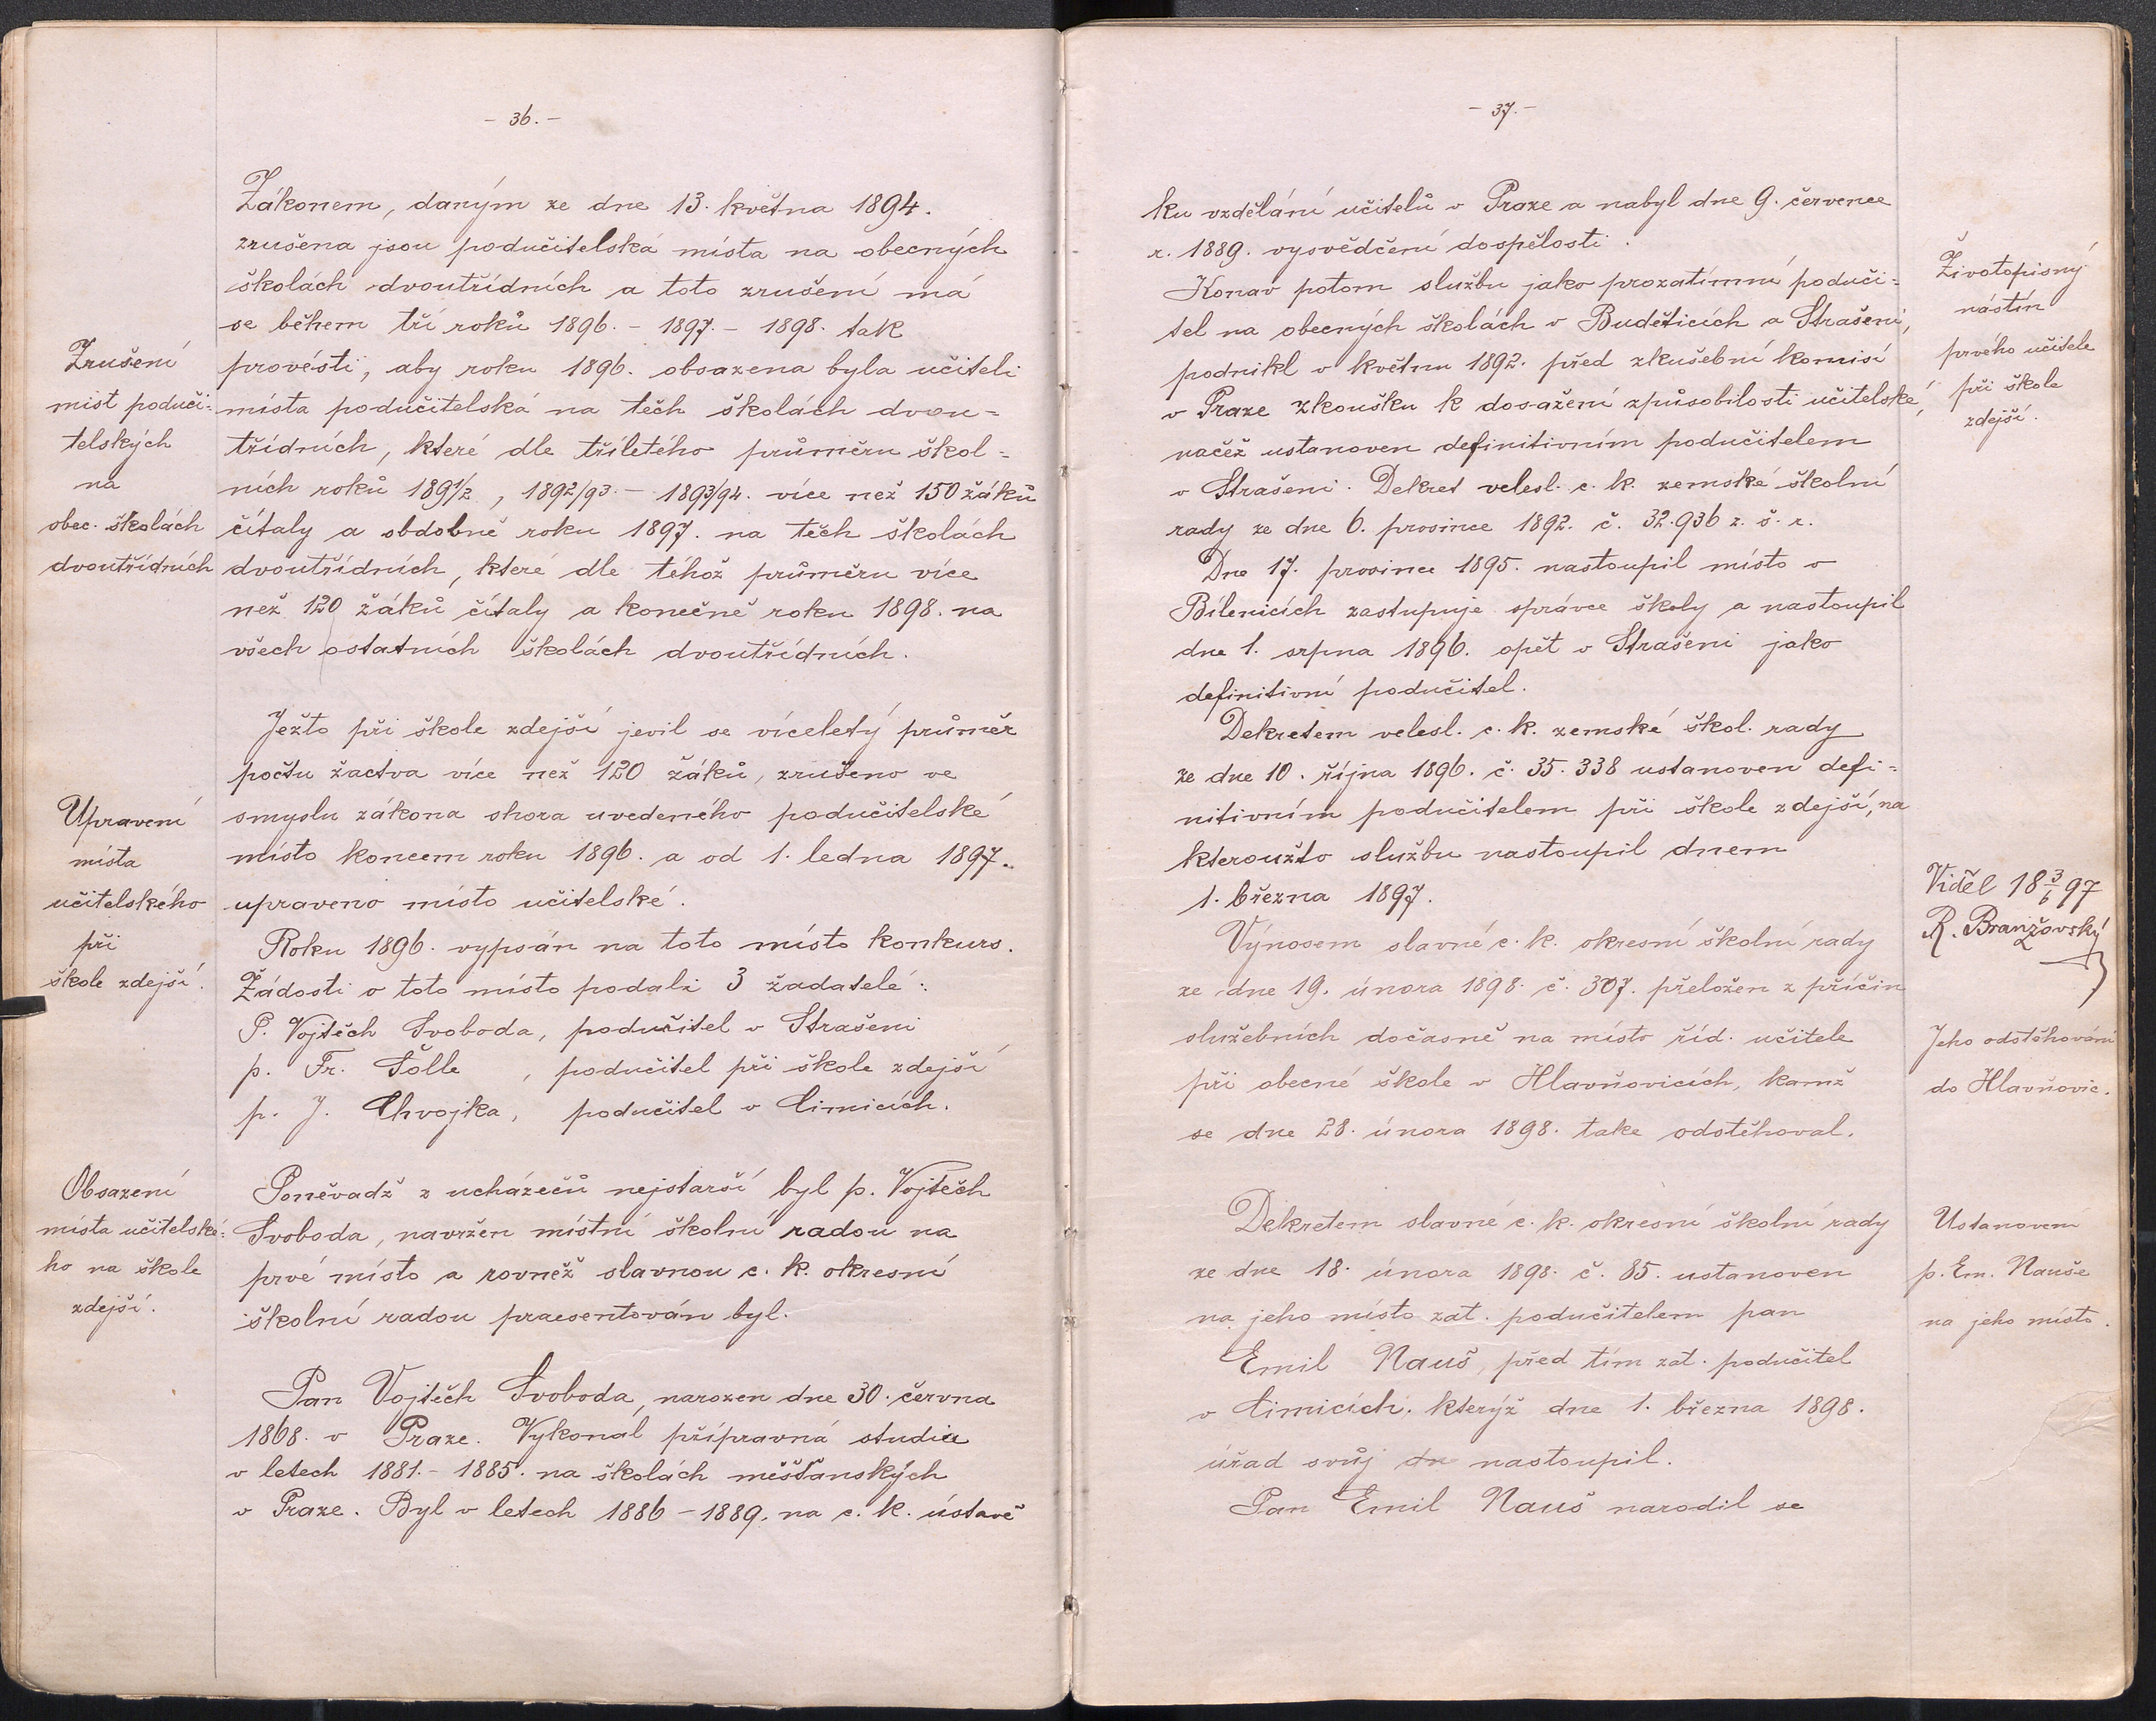 - 36. -
Zákonem, daným ze dne 13. května 1894.
zrušena jsou podučitelská místa na obecných
školách dvoutřídních a toto zrušení má
se během tří roků 1896. - 1897. - 1898. tak
provésti, aby roku 1896. obsazena byla učiteli
místa podučitelská na těch školách dvou=
třídních, které dle tříletého průměru škol=
ních roků 1891/2, 1892/93. - 1893/94. více než 150 žáků
čítaly a obdobně roku 1897. na těch školách
dvoutřídních, které dle téhož průměru více
než 120 žáků čítaly a konečně roku 1898. na
všech ostatních školách dvoutřídních.
Zrušení
míst poduči=
telských
na
obec. školách
dvoutřídních
Ježto při škole zdejší jevil se víceletý průměr
počtu žactva více než 120 žáků, zrušeno ve
smyslu zákona shora uvedeného podučitelské
místo koncem roku 1896. a od 1. ledna 1897.
upraveno místo učitelské.
Roku 1896. vypsán na toto místo konkurs.
Žádosti o toto místo podali 3 žadatelé:
P. Vojtěch Svoboda, podučitel v Strašeni
p. Fr. Šolle, podučitel při škole zdejší
p. J. Chvojka, podučitel v Čimicích.
Upravení
místa
učitelského
při
škole zdejší.
Poněvadž z ucházečů nejstarší byl p. Vojtěch
Svoboda, navržen místní školní radou na
prvé místo a rovněž slavnou c. k. okresní
školní radou praesentován byl.
Obsazení
místa učitelské=
ho na škole
zdejší.
Pan Vojtěch Svoboda, narozen dne 30. června
1868. v Praze. Vykonal přípravná studia
v letech 1881. - 1885. na školách měšťanských
v Praze. Byl v letech 1886 - 1889. na c. k. ústavě
- 37. -
ku vzdělání učitelů v Praze a nabyl dne 9. července
r. 1889. vysvědčení dospělosti.
Konav potom službu jako prozatímní poduči=
tel na obecných školách v Buděticích a Strašeni,
podnikl v květnu 1892. před zkušební komisí
v Praze zkoušku k dosažení způsobilosti učitelské,
načež ustanoven definitivním podučitelem
v Strašeni. Dekret velesl. c. k. zemské školní
rady ze dne 6. prosince 1892. č. 32.936 z. š. r.
Dne 17. prosince 1895. nastoupil místo v
Bílenicích zastupuje správce školy a nastoupil
dne 1. srpna 1896. opět v Strašeni jako
definitivní podučitel.
Dekretem velesl. c. k. zemské škol. rady
ze dne 10. října 1896. č. 35.338 ustanoven defi=
nitivním podučitelem při škole zdejší, na
kteroužto službu nastoupil dnem
1. března 1897.
Životopisný
nástin
prvého učitele
při škole
zdejší.
Viděl 18 3/6 97
R. Branžovský
Výnosem slavné c. k. okresní školní rady
ze dne 19. února 1898. č. 307. přeložen z příčin
služebních dočasně na místo říd. učitele
při obecné škole v Hlavňovicích, kamž
se dne 28. února 1898. take odstěhoval.
Jeho odstěhování
do Hlavňovic.
Dekretem slavné c. k. okresní školní rady
ze dne 18. února 1898. č. 85. ustanoven
na jeho místo zat. podučitelem pan
Emil Nauš, před tím zat. podučitel
v Čimicích, kterýž dne 1. března 1898.
úřad svůj dn nastoupil.
Pan Emil Nauš narodil se
Ustanovení
p. Em. Nauše
na jeho místo.